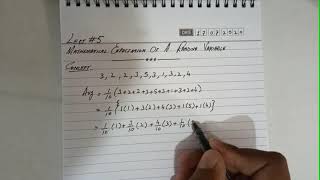 LECT #5
DATE 17072020
MATHEMATICAL EXPECTATION OF A RANDOM VARIABLE
CONCEPT
3, 2, 2, 3, 5, 3, 1, 3, 2, 4
Avg = 1/10 (3+2+2+3+5+3+1+3+2+4)
= 1/10 {1(1) + 3(2) + 4(3) + 1(5) + 1(4)}
= 1/10 (1) + 3/10 (2) + 4/10 (3) + 1/10 (